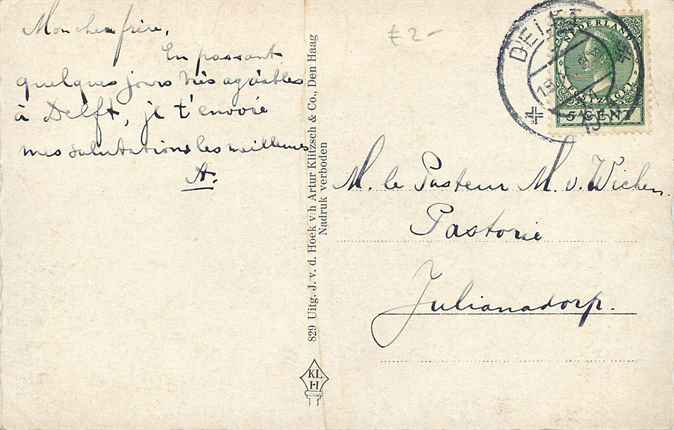 Mon cher frère,
En passant
quelques jours très agréables
à Delft, je t'envoie
mes salutations les meilleures
A.
£2-
829 Uitg. J. v. d. Hoek v/h Artur Klitzsch & Co., Den Haag
Nadruk verboden
KL
H
DELFT
NEDERLAND
5 CENT
M. le Pasteur M. v. Wichen.
Pastorie
Julianadorp.